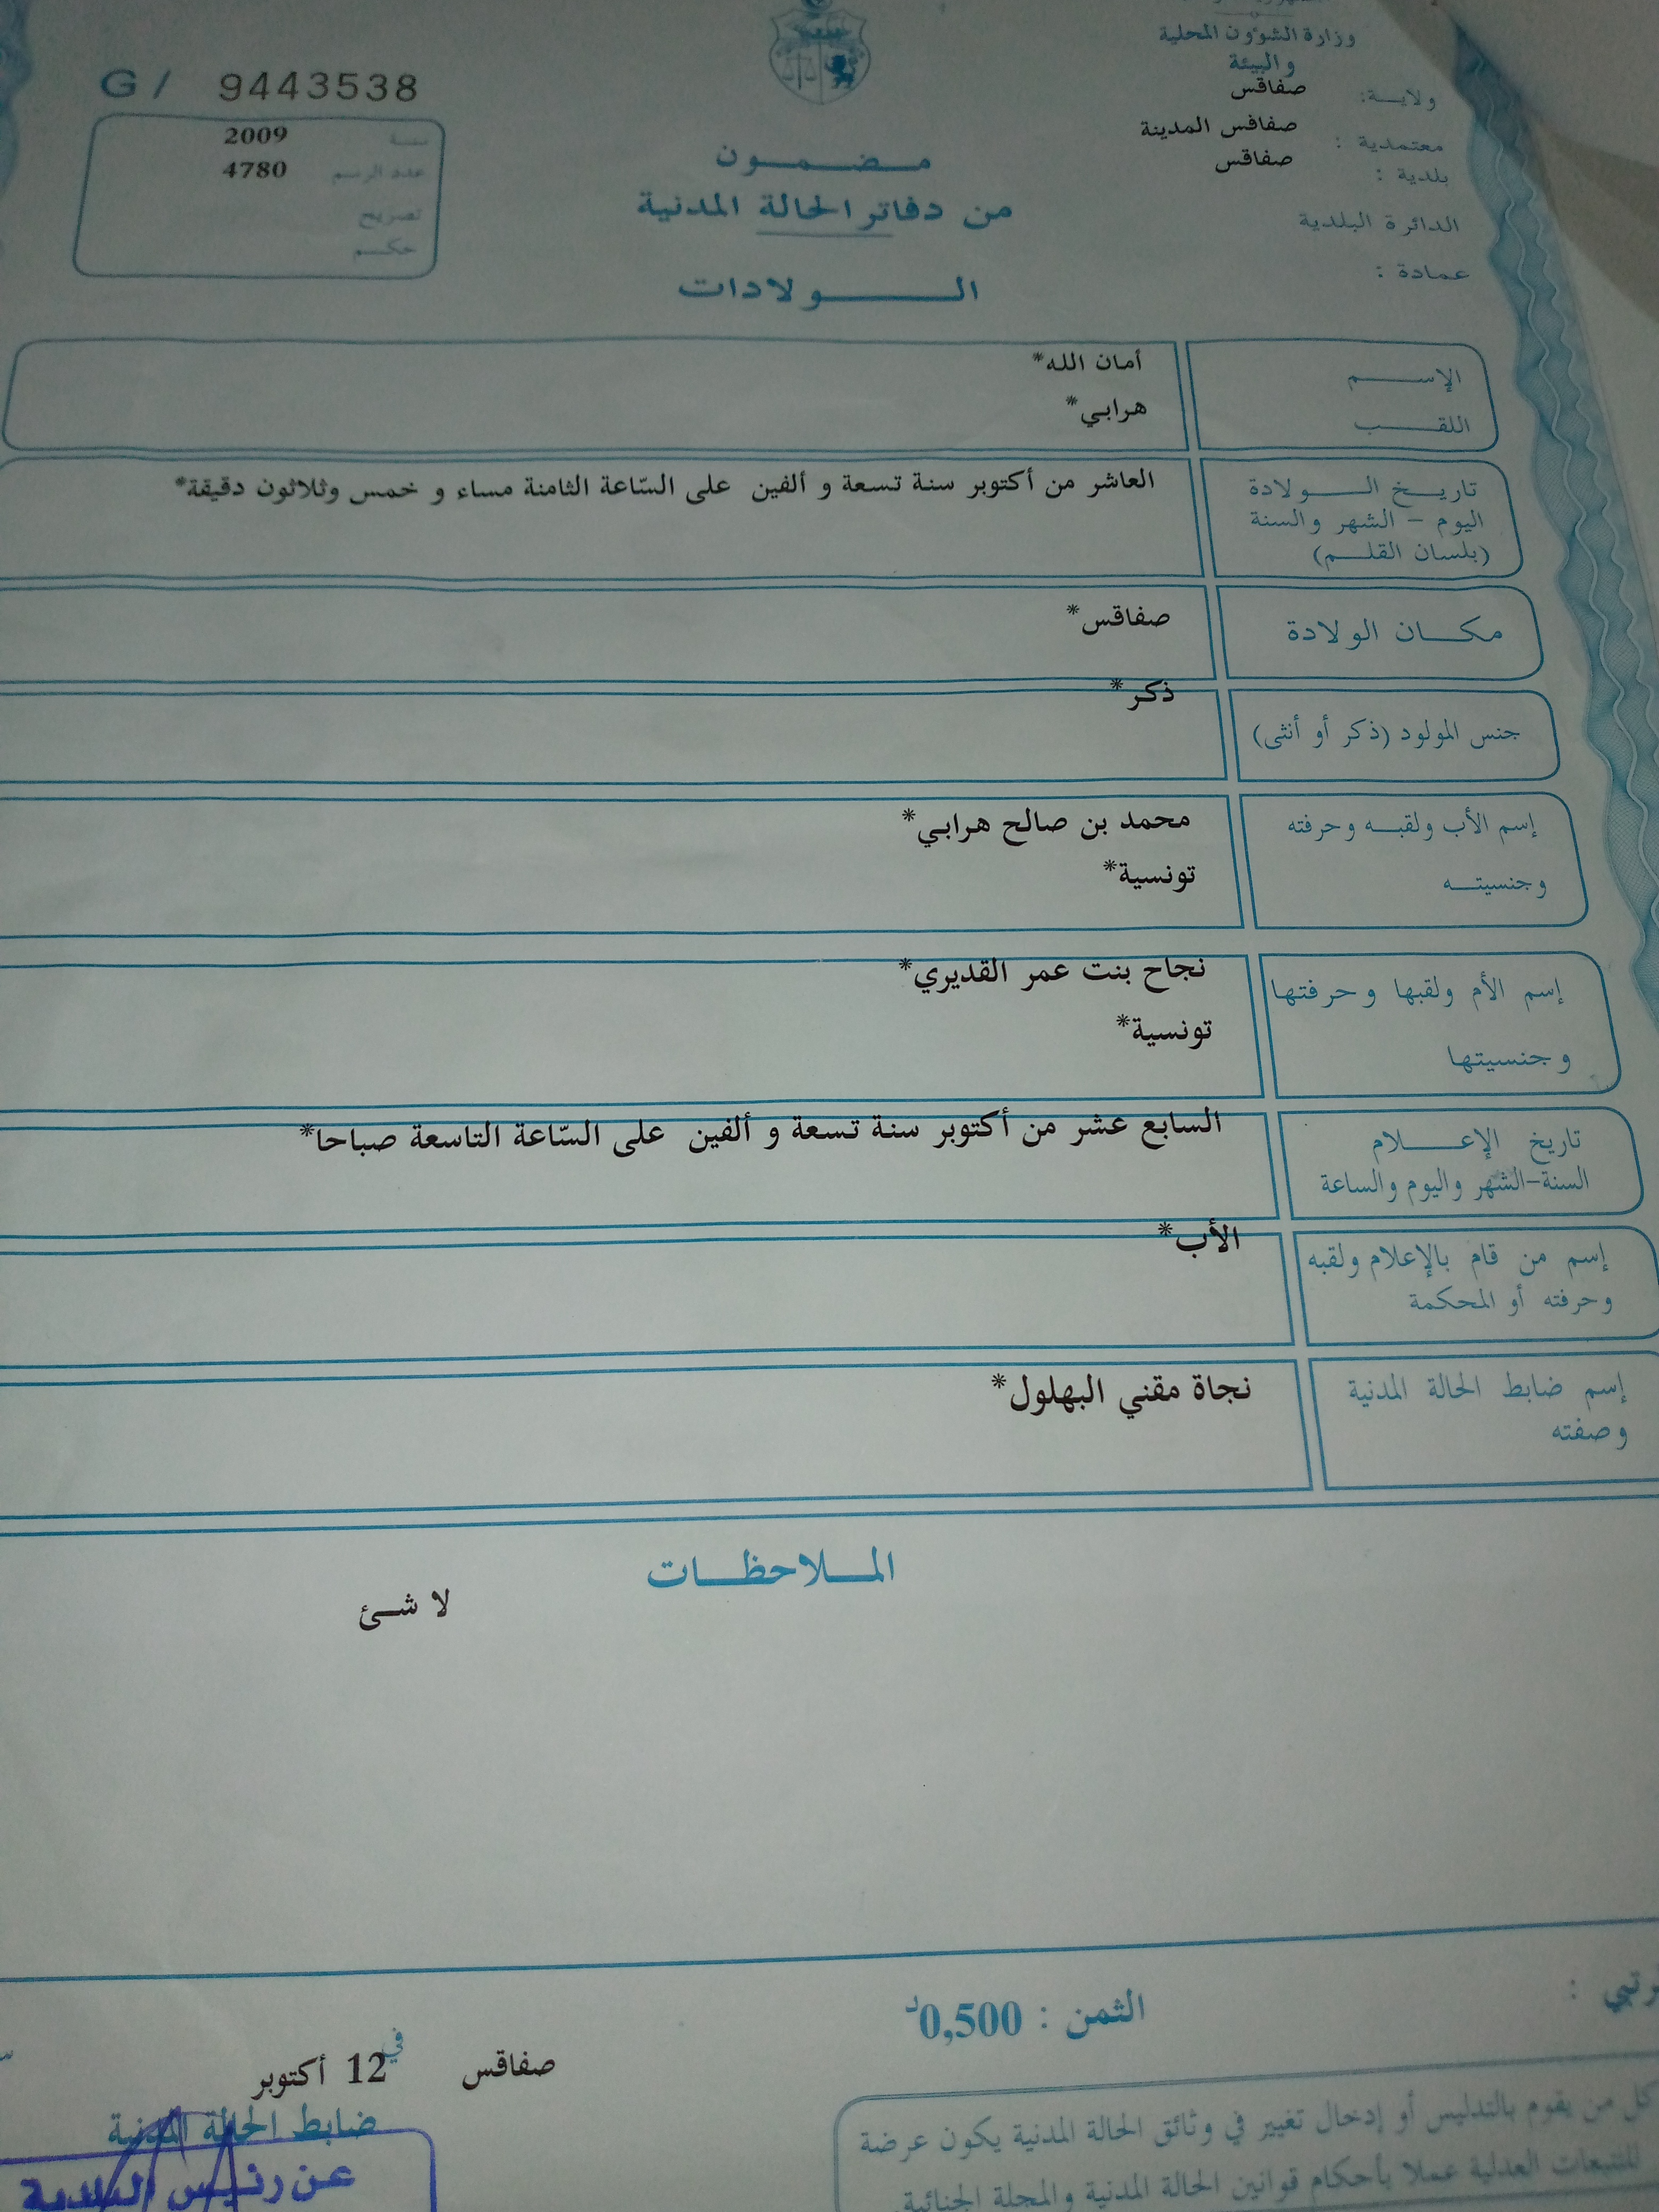 وزارة الشؤون المحلية
والبيئة
ولايـــة: صفاقس
معتمدية : صفاقس المدينة
بلدية : صفاقس
الدائرة البلدية
عمادة :
G / 9443538
سنـة 2009
عدد الرسم 4780
تصريح
حكـــم
مــضــمــون
من دفاتر الحالة المدنية
الــــولادات
الإســـــم أمان الله*
اللقـــــب هرابي*
تاريـــخ الــــولادة العاشر من أكتوبر سنة تسعة و ألفين على السّاعة الثامنة مساء و خمس وثلاثون دقيقة*
اليوم - الشهر والسنة
(بلسان القلـــم)
مكـــان الولادة صفاقس*
جنس المولود (ذكر أو أنثى) ذكر*
إسم الأب ولقبـــه وحرفته محمد بن صالح هرابي*
وجنسيتـــه تونسية*
إسم الأم ولقبها وحرفتها نجاح بنت عمر القديري*
وجنسيتها تونسية*
تاريخ الإعـــــلام السابع عشر من أكتوبر سنة تسعة و ألفين على السّاعة التاسعة صباحا*
السنة-الشهر واليوم والساعة
إسم من قام بالإعلام ولقبه الأب*
وحرفته أو المحكمة
إسم ضابط الحالة المدنية نجاة مقني البهلول*
وصفته
المــلاحظــات
لا شــئ
الثمن : 0,500د
صفاقس في 12 أكتوبر
ضابط الحالة المدنية
عن رئيس البلدية
كل من يقوم بالتدليس أو إدخال تغيير في وثائق الحالة المدنية يكون عرضة
للتتبعات العدلية عملا بأحكام قوانين الحالة المدنية والمجلة الجنائية.